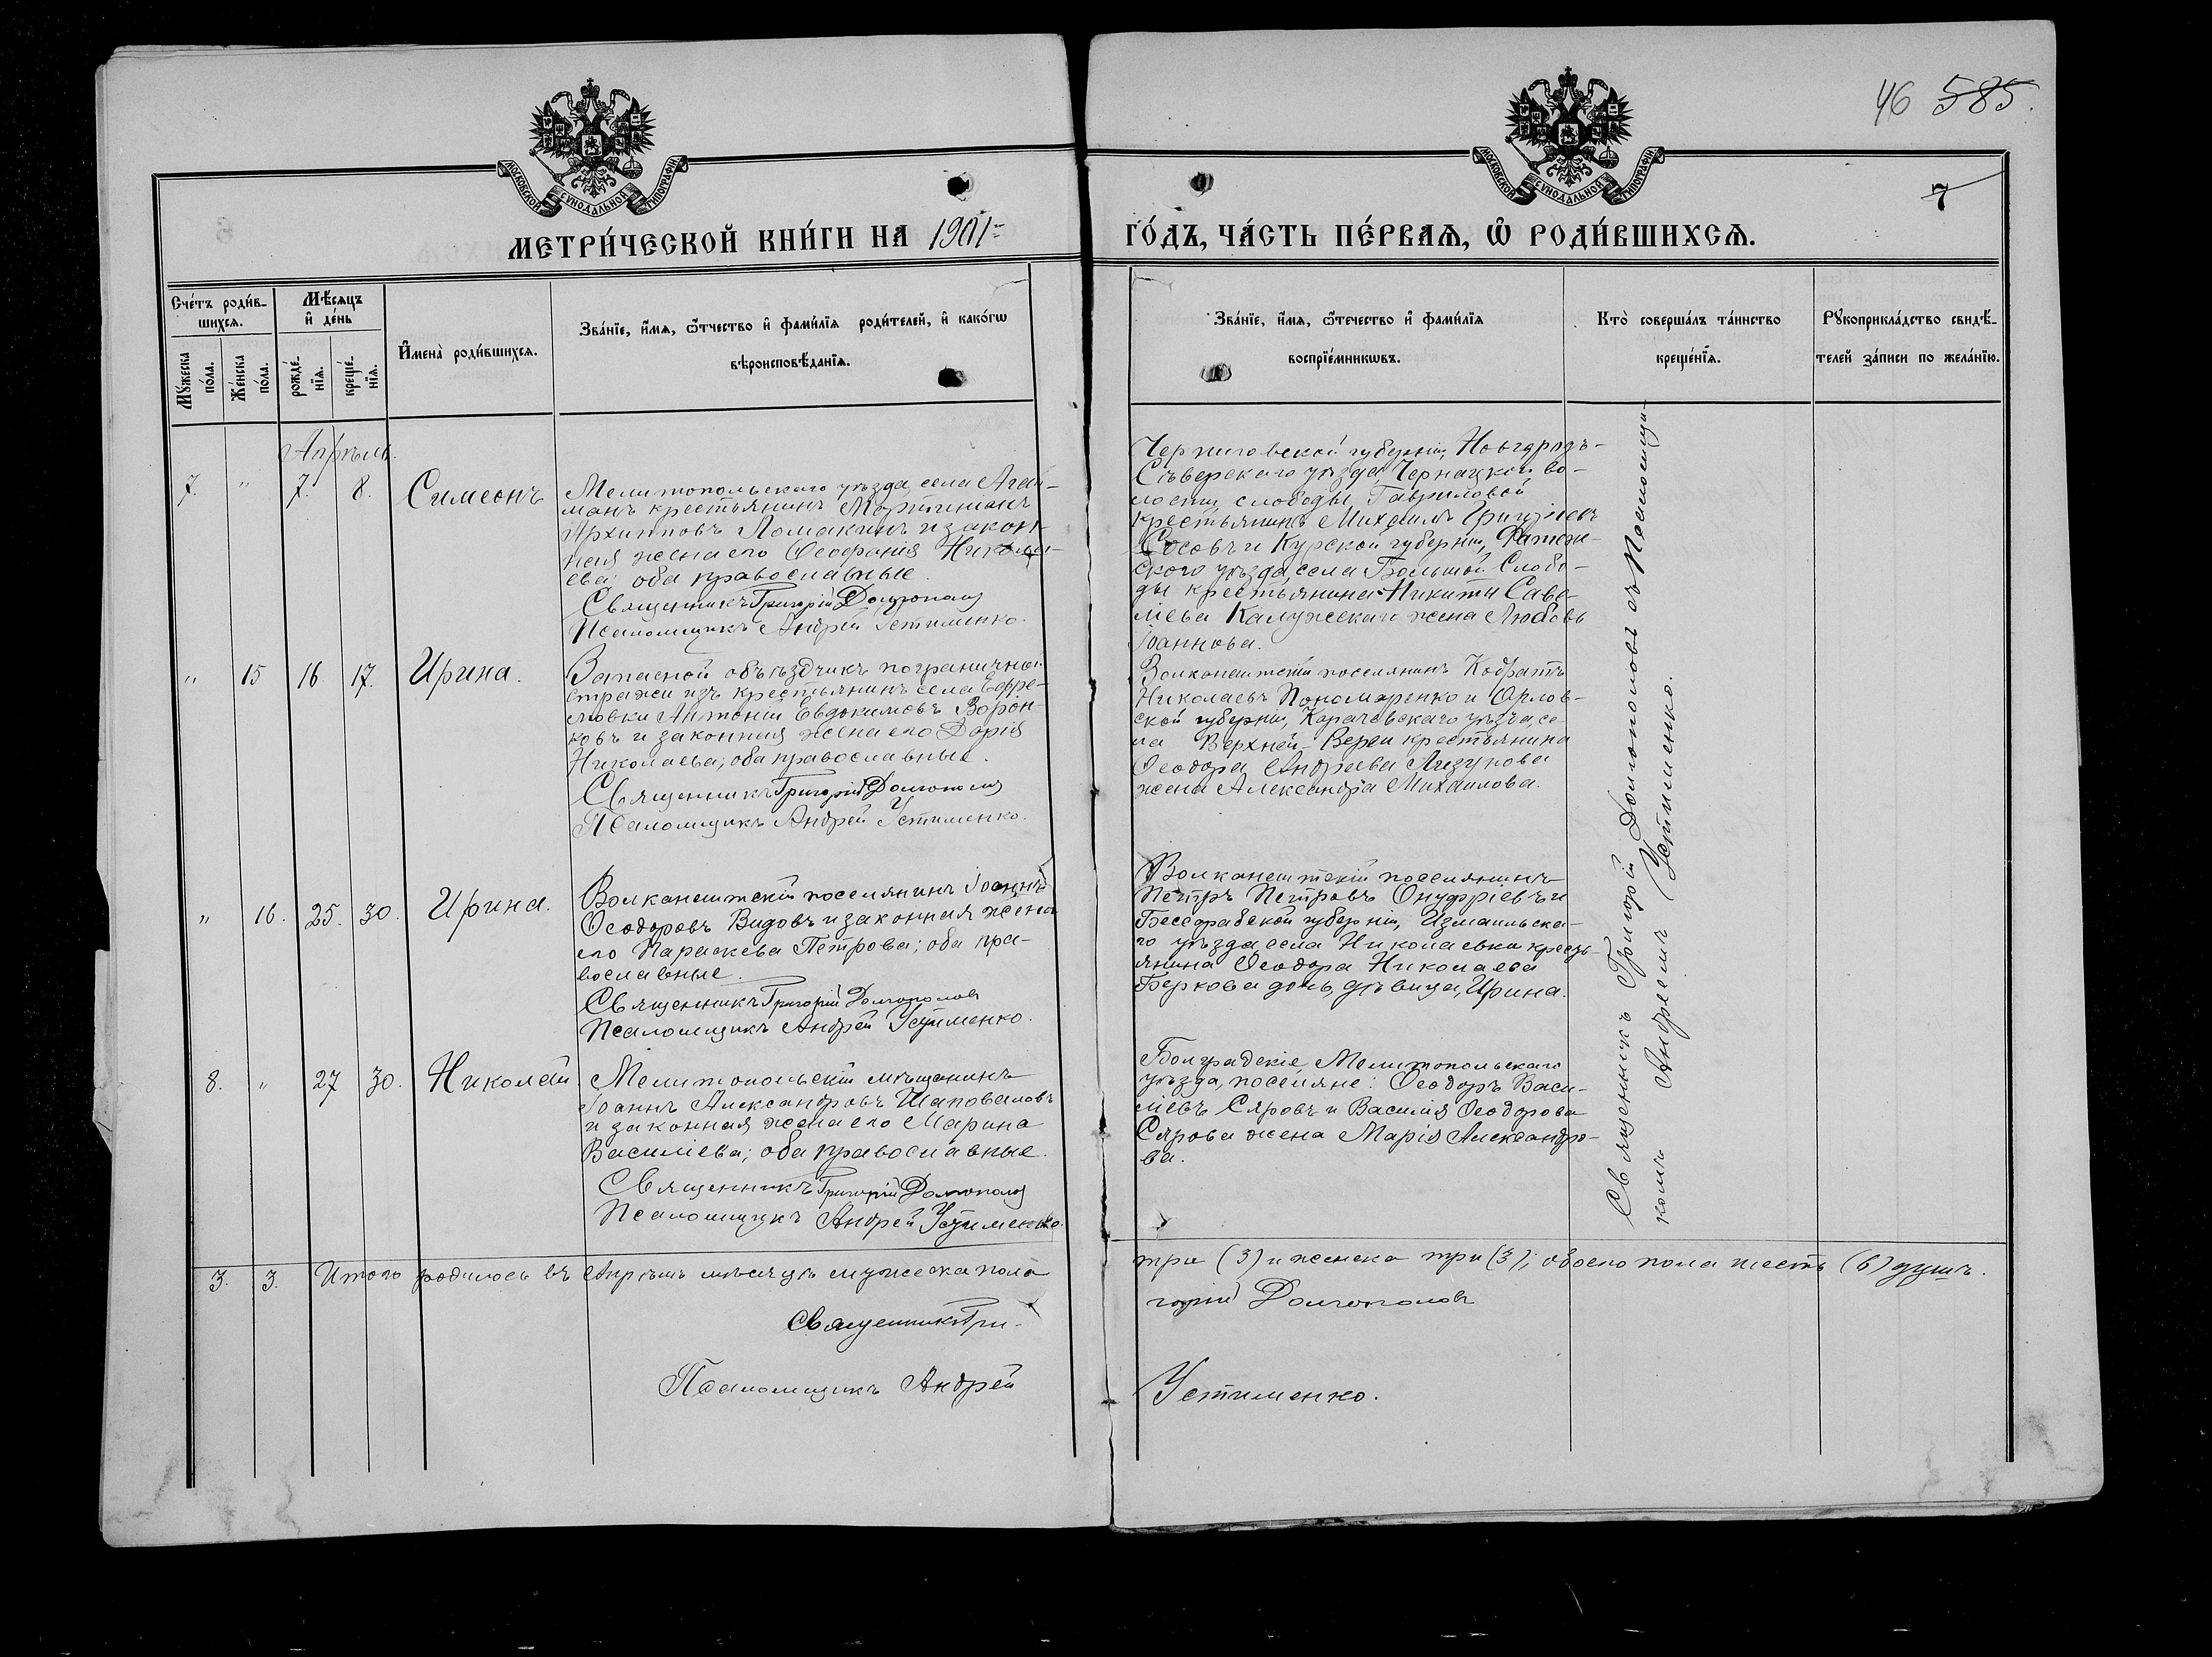 46 585.
7
МОСКОВСКОЙ СѴНОДАЛЬНОЙ ТИПОГРАФІИ
МОСКОВСКОЙ СѴНОДАЛЬНОЙ ТИПОГРАФІИ
МЕТРИ́ЧЕСКОЙ КНИ́ГИ НА 1901
ГО́ДЪ, ЧА́СТЬ ПЕ́РВАѦ, Ѽ РОДИ́ВШИХСѦ.
Сче́тъ роди́в-
шихсѧ.
Мꙋ́жеска по́ла.
Же́нска по́ла.
Мѣ́сѧцъ
и҆ де́нь
рожде́-
нїѧ.
креще́-
нїѧ.
И҆мена̀ роди́вшихсѧ.
Зва́нїе, и҆́мѧ, ѻ҆́тчество и҆ фами́лїѧ роди́телей, и҆ како́гѡ
вѣроисповѣ́данїѧ.
Зва́нїе, и҆́мѧ, ѻ҆те́чество и҆ фами́лїѧ
воспрїе́мникѡвъ.
Кто̀ соверша́лъ та́инство
креще́нїѧ.
Рꙋкоприкла́дство свидѣ́-
телей за́писи по жела́нїю.
Апрѣль.
7. " 7. 8. Симеонъ
Мелитопольскаго уѣзда, села Агай-
манъ крестьянинъ Мартиніанъ
Архиповъ Ломакинъ и закон-
ная жена его Ѳеофанія Никола-
ева; оба православные.
Священникъ Григорій Долгополовъ
Псаломщикъ Андрей Устименко.
Черниговской губерніи, Новгородъ-
Сѣверскаго уѣзда, Чернацкой во-
лости, слободы Гавриловой
крестьянинъ Михаилъ Григоріевъ
Сосовъ и Курской губерніи, Фатеж-
скаго уѣзда, села Большой Слобо-
ды крестьянина Никиты Саве-
ліева Калужскаго жена Любовь
Іоаннова.
" 15 16 17. Ирина.
Запасной объѣздчикъ погранично
стражи изъ крестьянинъ села Ефре-
мовки Антоній Евдокимовъ Ворон-
ковъ и законная жена его Дарія
Николаева; оба православные.
Священникъ Григорій Долгополовъ
Псаломщикъ Андрей Устименко.
Волканештскій поселянинъ Кодратъ
Николаевъ Пономаренко и Орлов-
ской губерніи, Карачевскаго уѣзда, се-
ла Верхней-Вереи крестьянина
Ѳеодора Андреева Лизунова
жена Александра Михаилова.
" 16. 25. 30. Ирина.
Волканештскій поселянинъ Іоаннъ
Ѳеодоровъ Видовъ и законная жена
его Параскева Петрова; оба пра-
вославные.
Священникъ Григорій Долгополовъ
Псаломщикъ Андрей Устименко.
Волканештскій поселянинъ
Петръ Петровъ Онуфріевъ и
Бессарабской губерніи, Измаильска-
го уѣзда, села Николаевки кресть-
янина Ѳеодора Николаева
Беркова дочь, дѣвица, Ирина.
8. " 27 30. Николай
Мелитопольскій мѣщанинъ
Іоаннъ Александровъ Шаповаловъ
и законная жена его Марина
Василіева; оба православные.
Священникъ Григорій Долгополовъ
Псаломщикъ Андрей Устименко.
Болградскіе, Мелитопольскаго
уѣзда, поселяне: Ѳеодоръ Васи-
ліевъ Сяровъ и Василія Ѳеодорова
Сярова жена Марія Александро-
ва.
Священникъ Григорій Долгополовъ съ Псаломщи-
комъ Андреемъ Устименко.
3. 3. Итого родилось въ Апрѣлѣ мѣсяцѣ мужеска пола
три (3) и женска три (3); обоего пола шесть (6) душъ.
Священникъ Гри-
горій Долгополовъ
Псаломщикъ Андрей
Устименко.